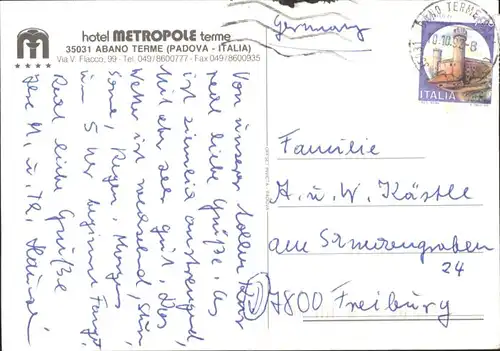 hotel METROPOLE terme
35031 ABANO TERME (PADOVA - ITALIA)
Via V. Flacco, 99 - Tel. 049/8600777 - Fax 049/8600935
Germany
ABANO TERME
ITALIA
Von unserer tollen
recht liebe Grüße. Es
ist ziemlich anstrengend,
tut aber sehr gut. Das
Wetter ist wechselnd,
Sonne, Regen. Morgens
um 5 Uhr beginnt Fango.
Recht liebe Grüße
Ihre H. u.
Familie
A. u. W. Kästle
am Schmorengraben
24
7800 Freiburg